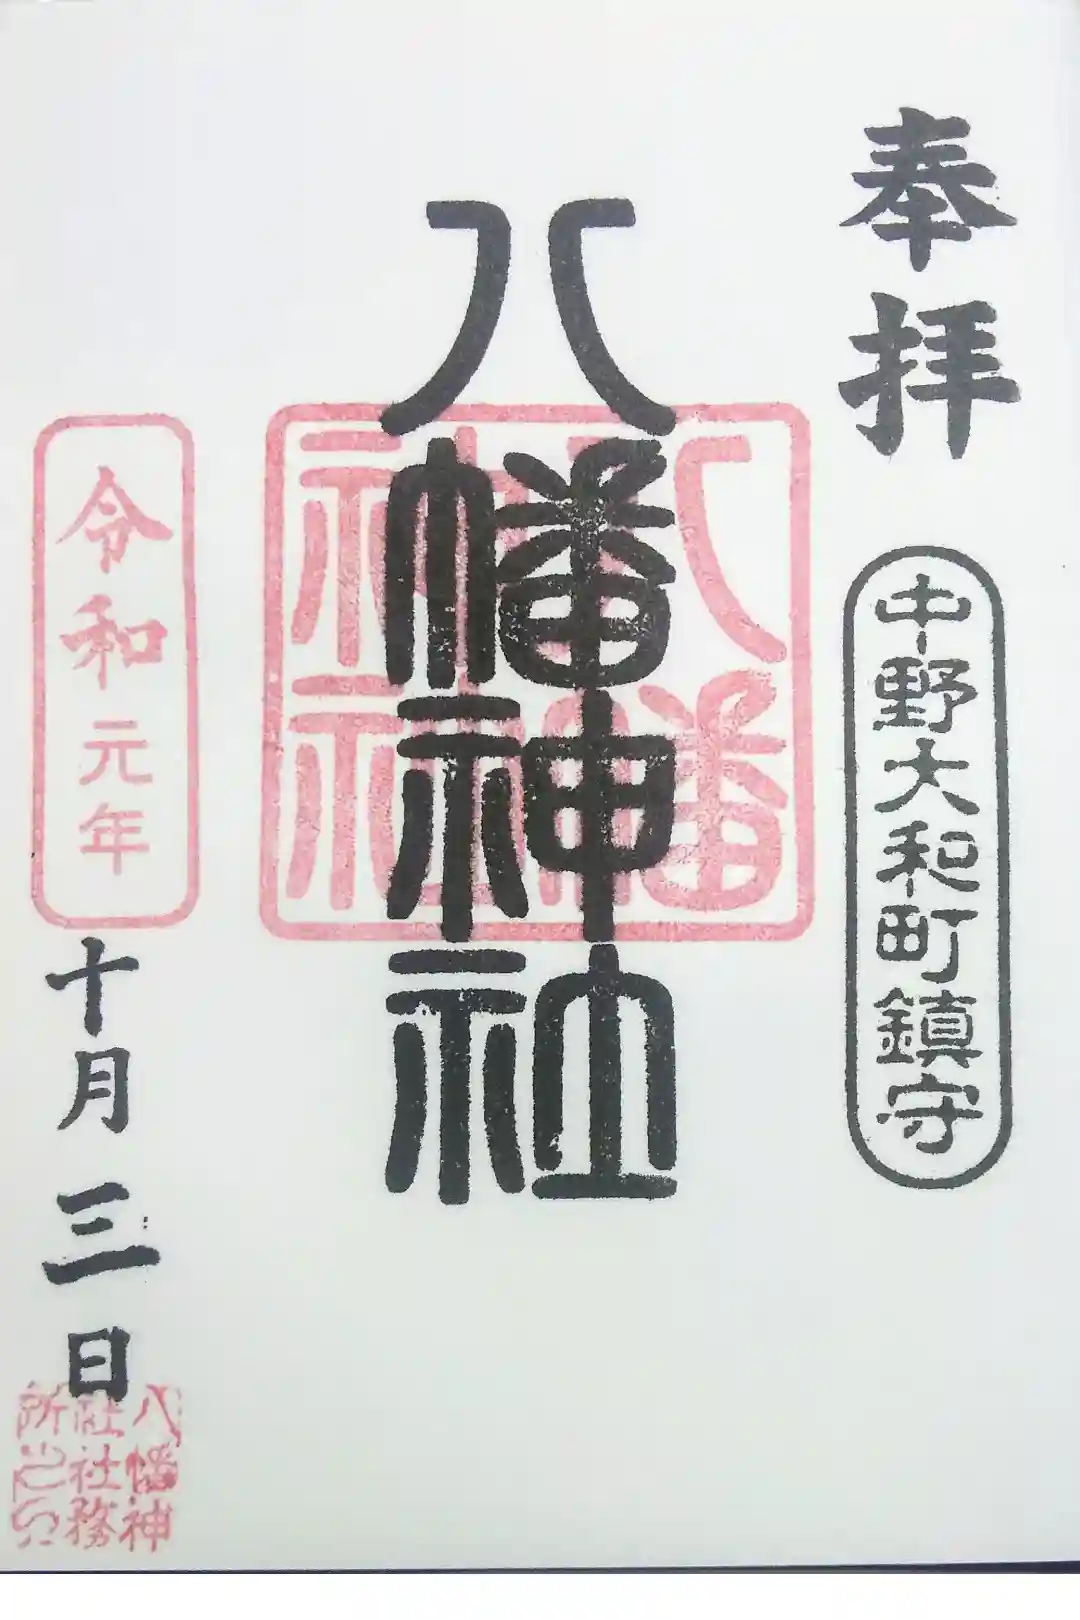 奉拝
中野大和町鎮守
八幡神社
八幡
神社
令和元年
十月三日
八幡神
社社務
所之印